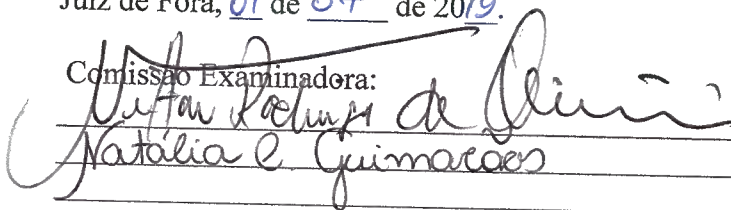 Juiz de Fora, 01 de 07 de 2019.
Comissão Examinadora:
de Oliveira
Natália C Guimarães